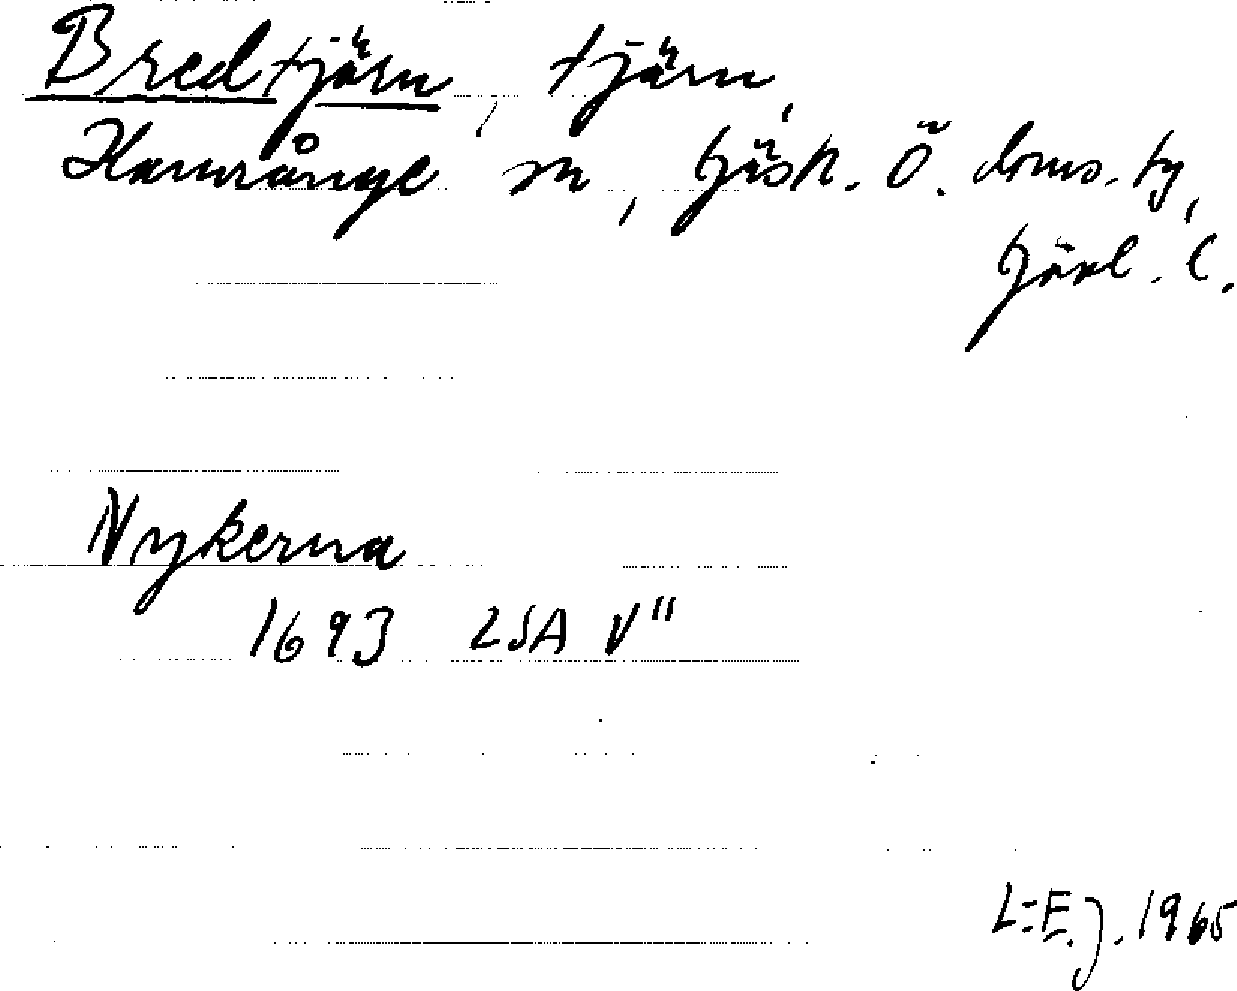 Bredtjärn, tjärn,
Hamrånge sn, Gästr. Ö. doms. tg,
Gävl. l.
Nykerna
1693 LSA V"
L-E.J. 1965